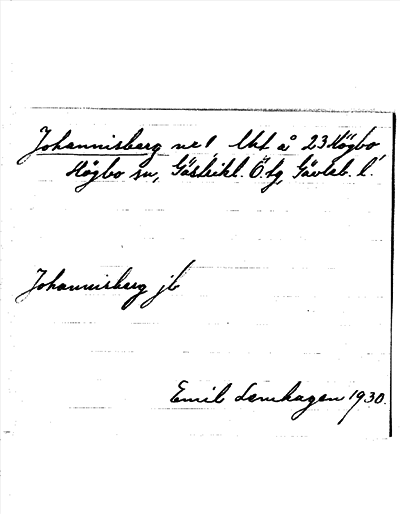 Johannisberg nr 1 Uht å 23 Högbo
Högbo sn, Gästrikl. Ö. tg, Gävleb. l.
Johannisberg jb
Emil Lennhagen 1930.